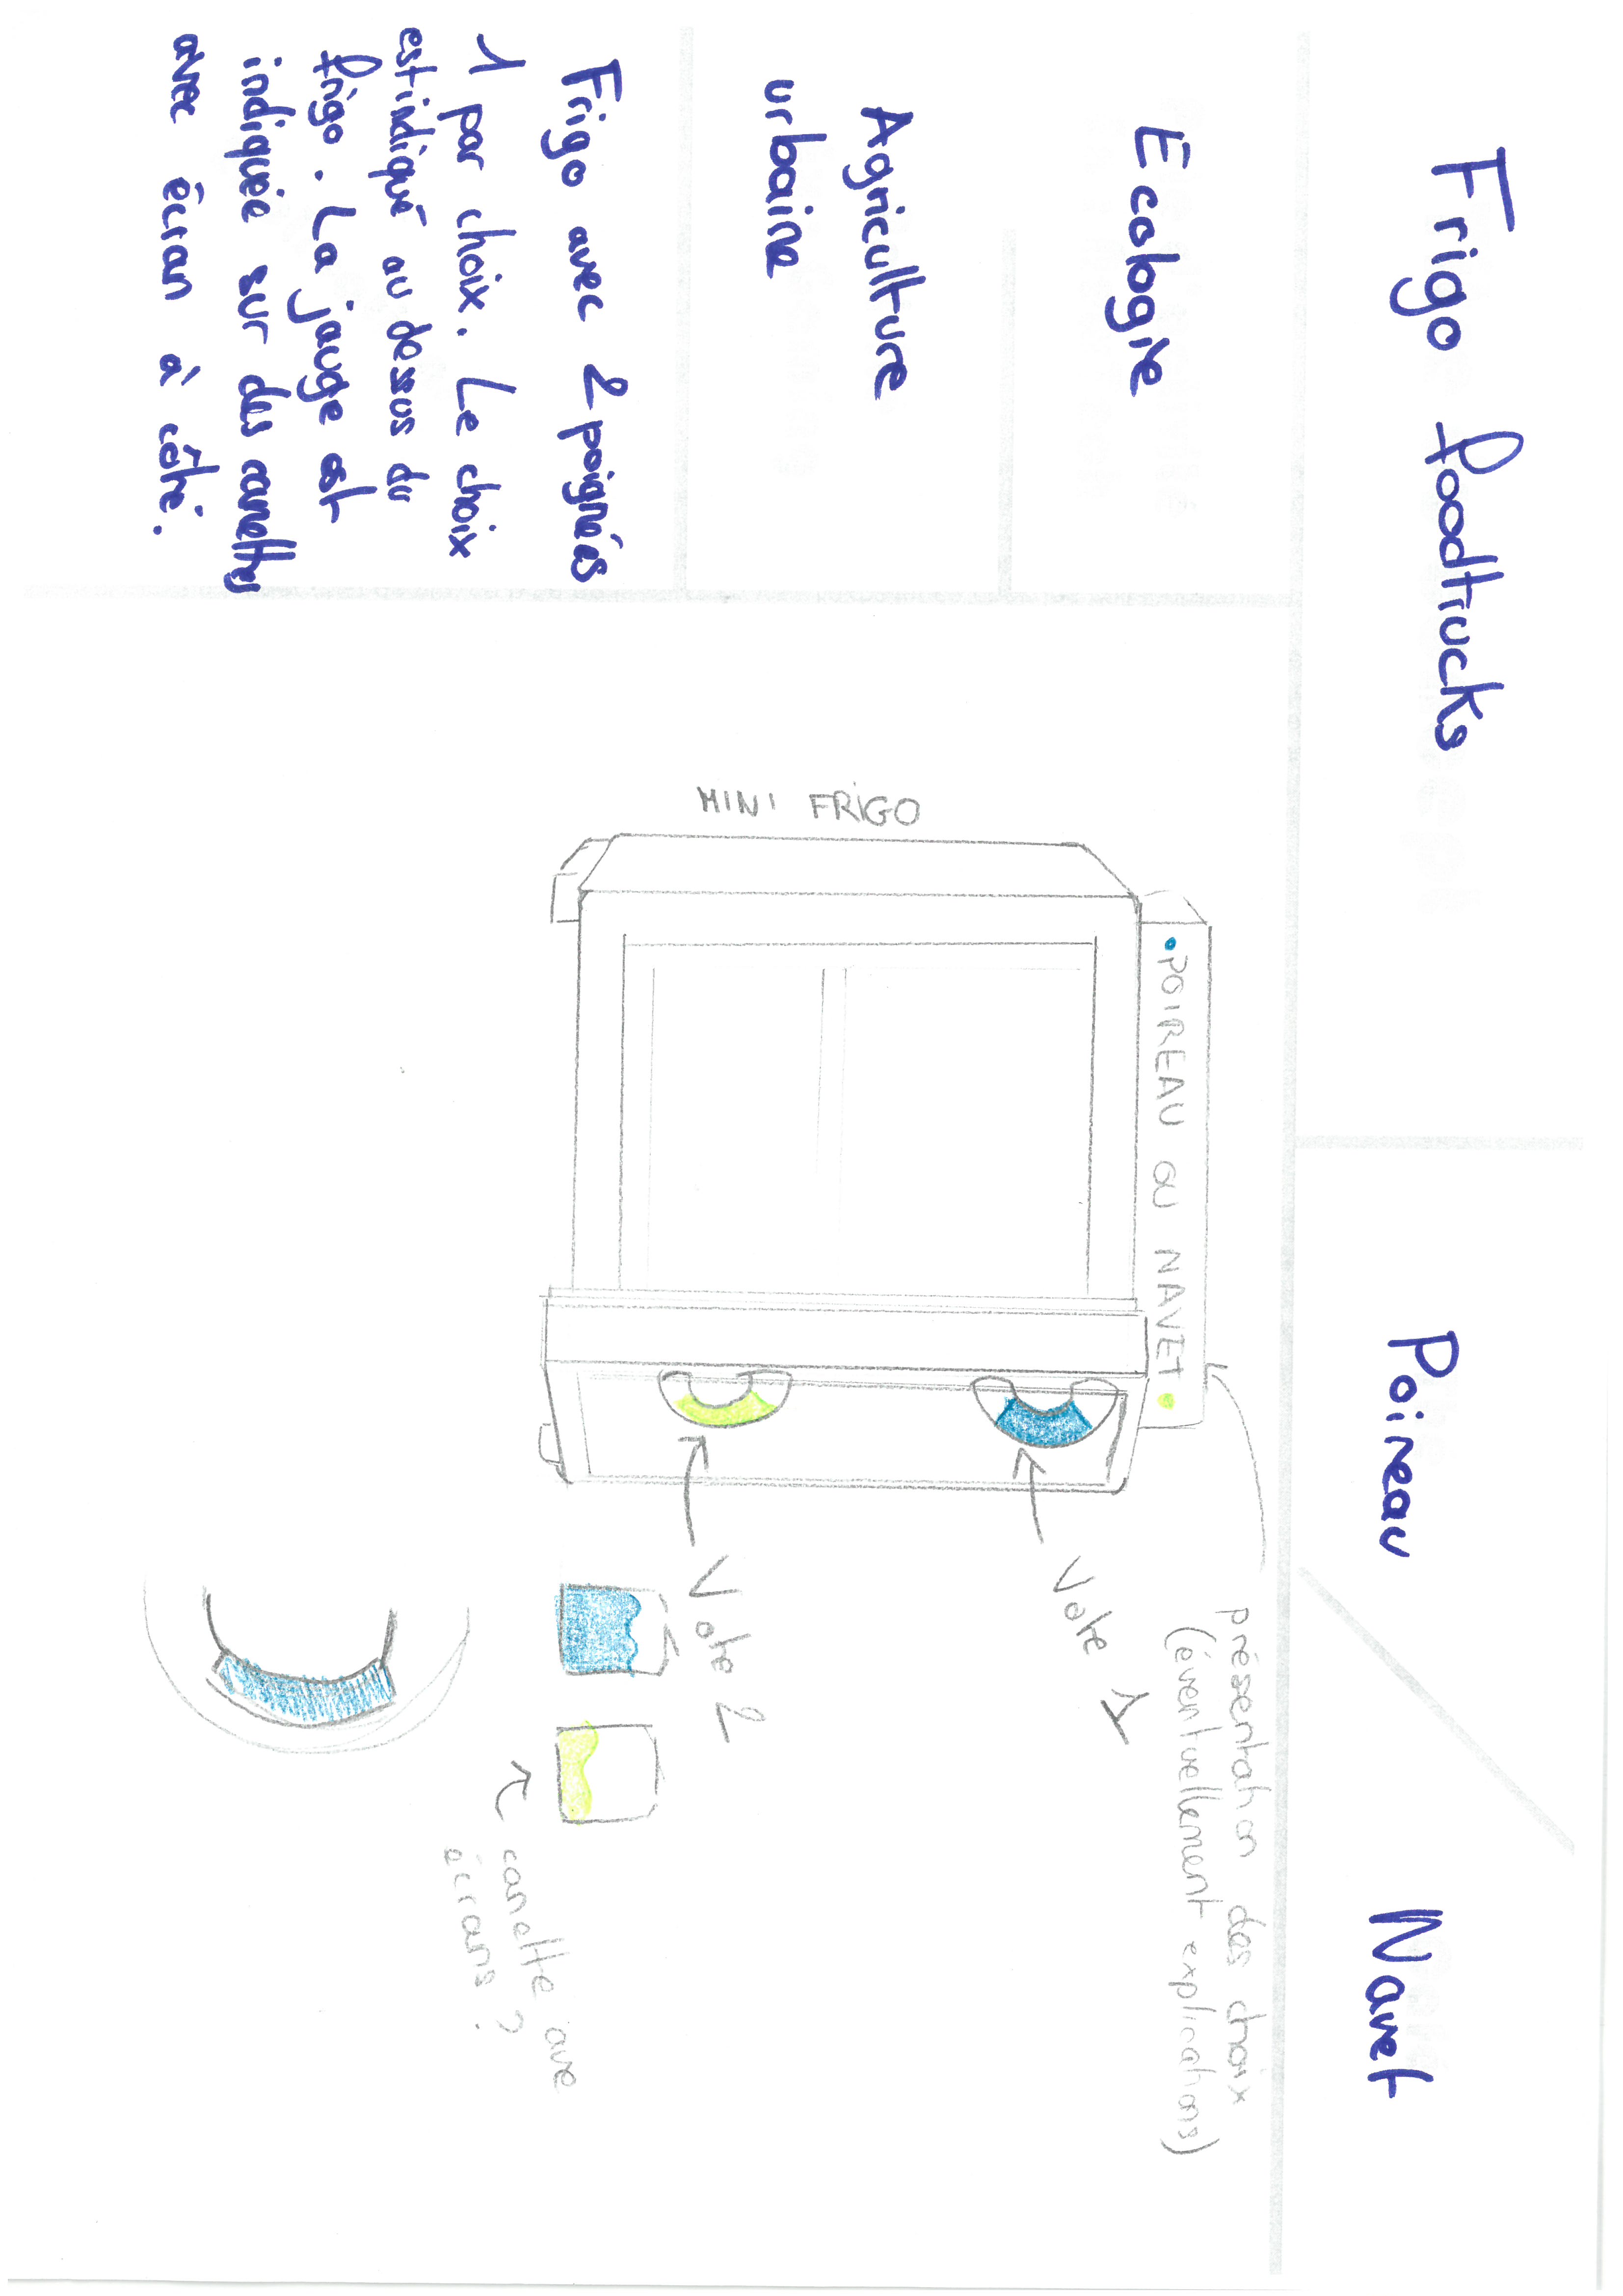 Frigo foodtrucks
Poireau
Navet
Ecologie
Agriculture
urbaine
Frigo avec 2 poignées
1 par choix. Le choix
est indiqué au dessus du
frigo. La jauge est
indiquée sur des canettes
avec écran à côté.
MINI FRIGO
POIREAU OU NAVET
Vote 1
Vote 2
présentation des choix
(éventuellement explications)
canette ave
écrans ?